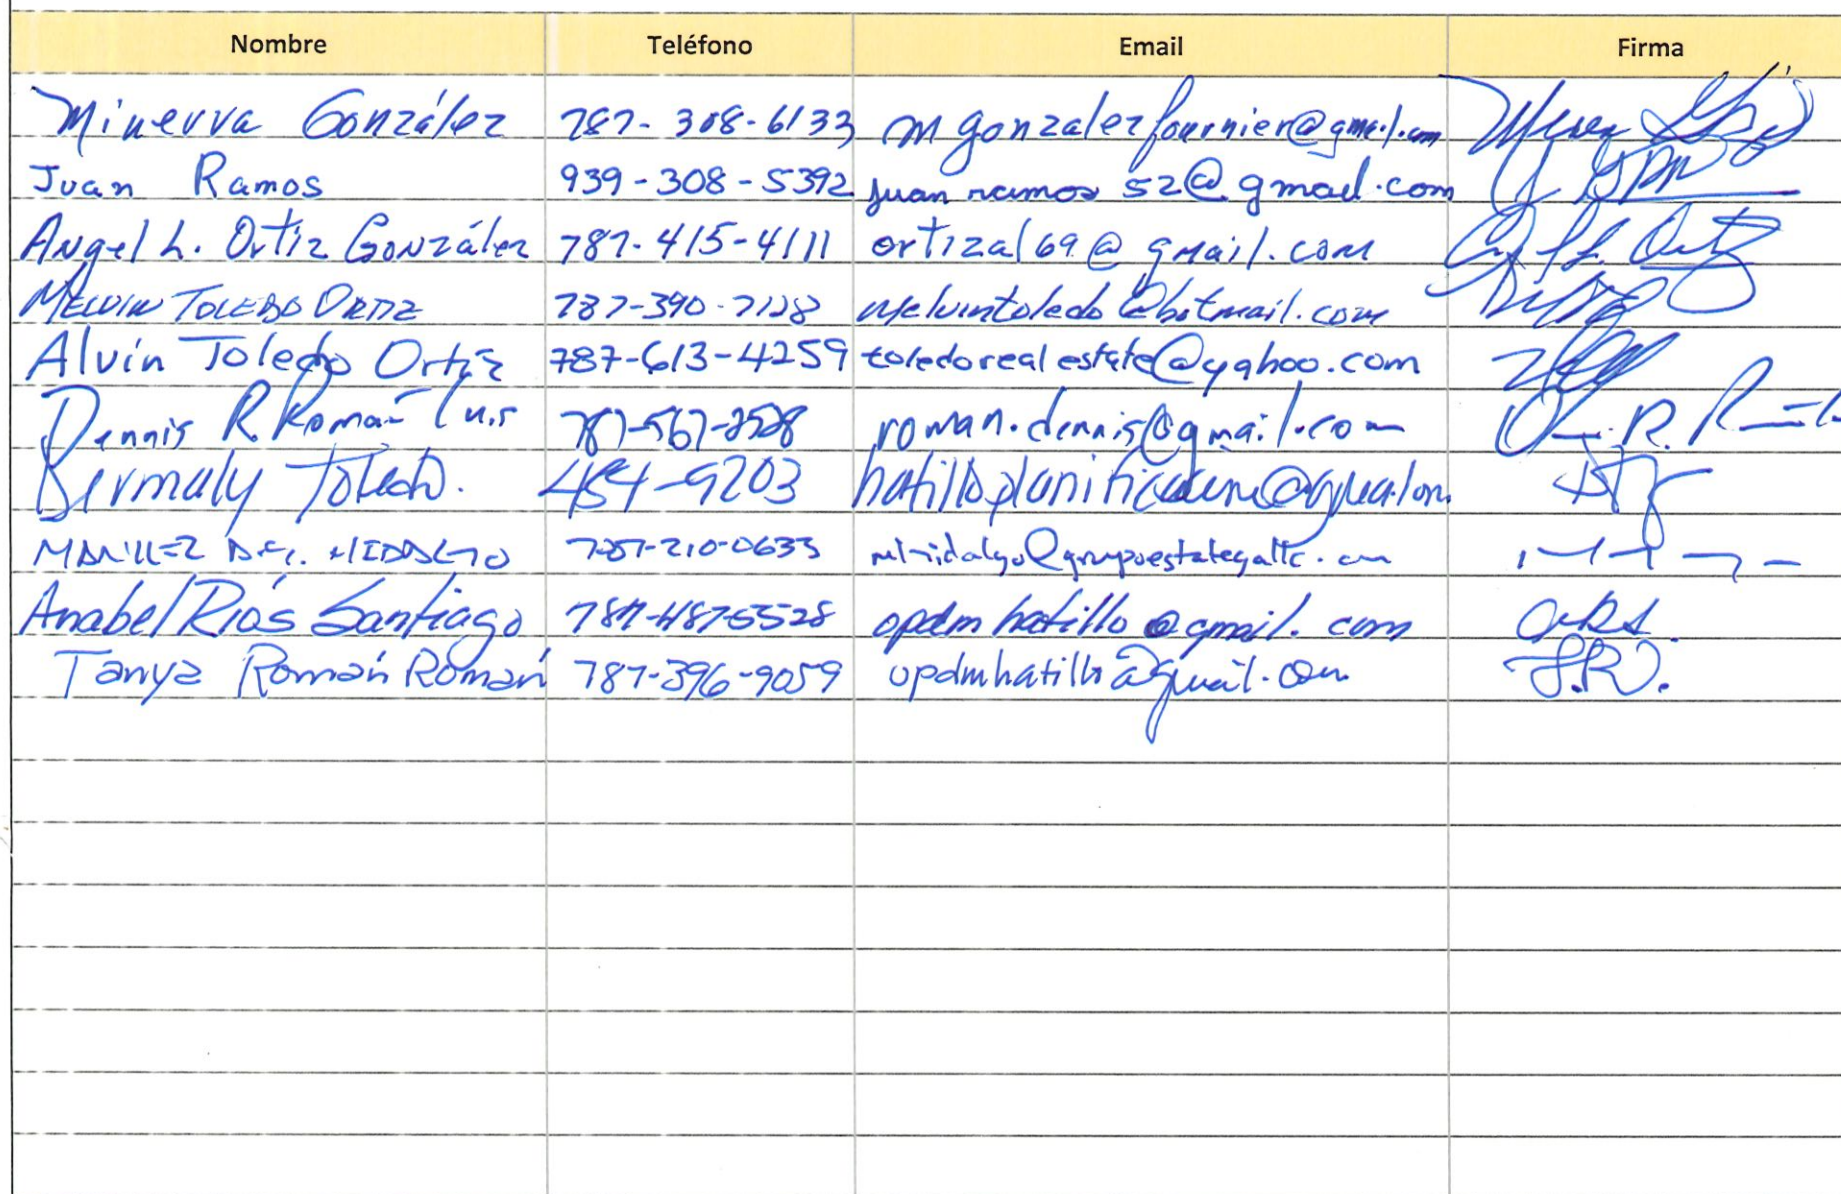 Nombre Teléfono Email Firma
Minerva González 787-308-6133 mgonzalezfournier@gmail.com
Juan Ramos 939-308-5392 juanramos52@gmail.com
Angel L. Ortiz González 787-415-4111 ortizal69@gmail.com
MELVIN TOLEDO ORTIZ 787-390-7128 melvintoledo@hotmail.com
Alvin Toledo Ortiz 787-613-4259 toledorealestate@yahoo.com
Dennis R. Román 787-567-2528 roman.dennis@gmail.com
Toledo. 484-9203
HIDALGO 787-210-0633
Anabel Ríos Santiago 787-487-5528 opdmhatillo@gmail.com ARS.
Tanya Román Román 787-396-9059 opdmhatillo@gmail.com T.R.